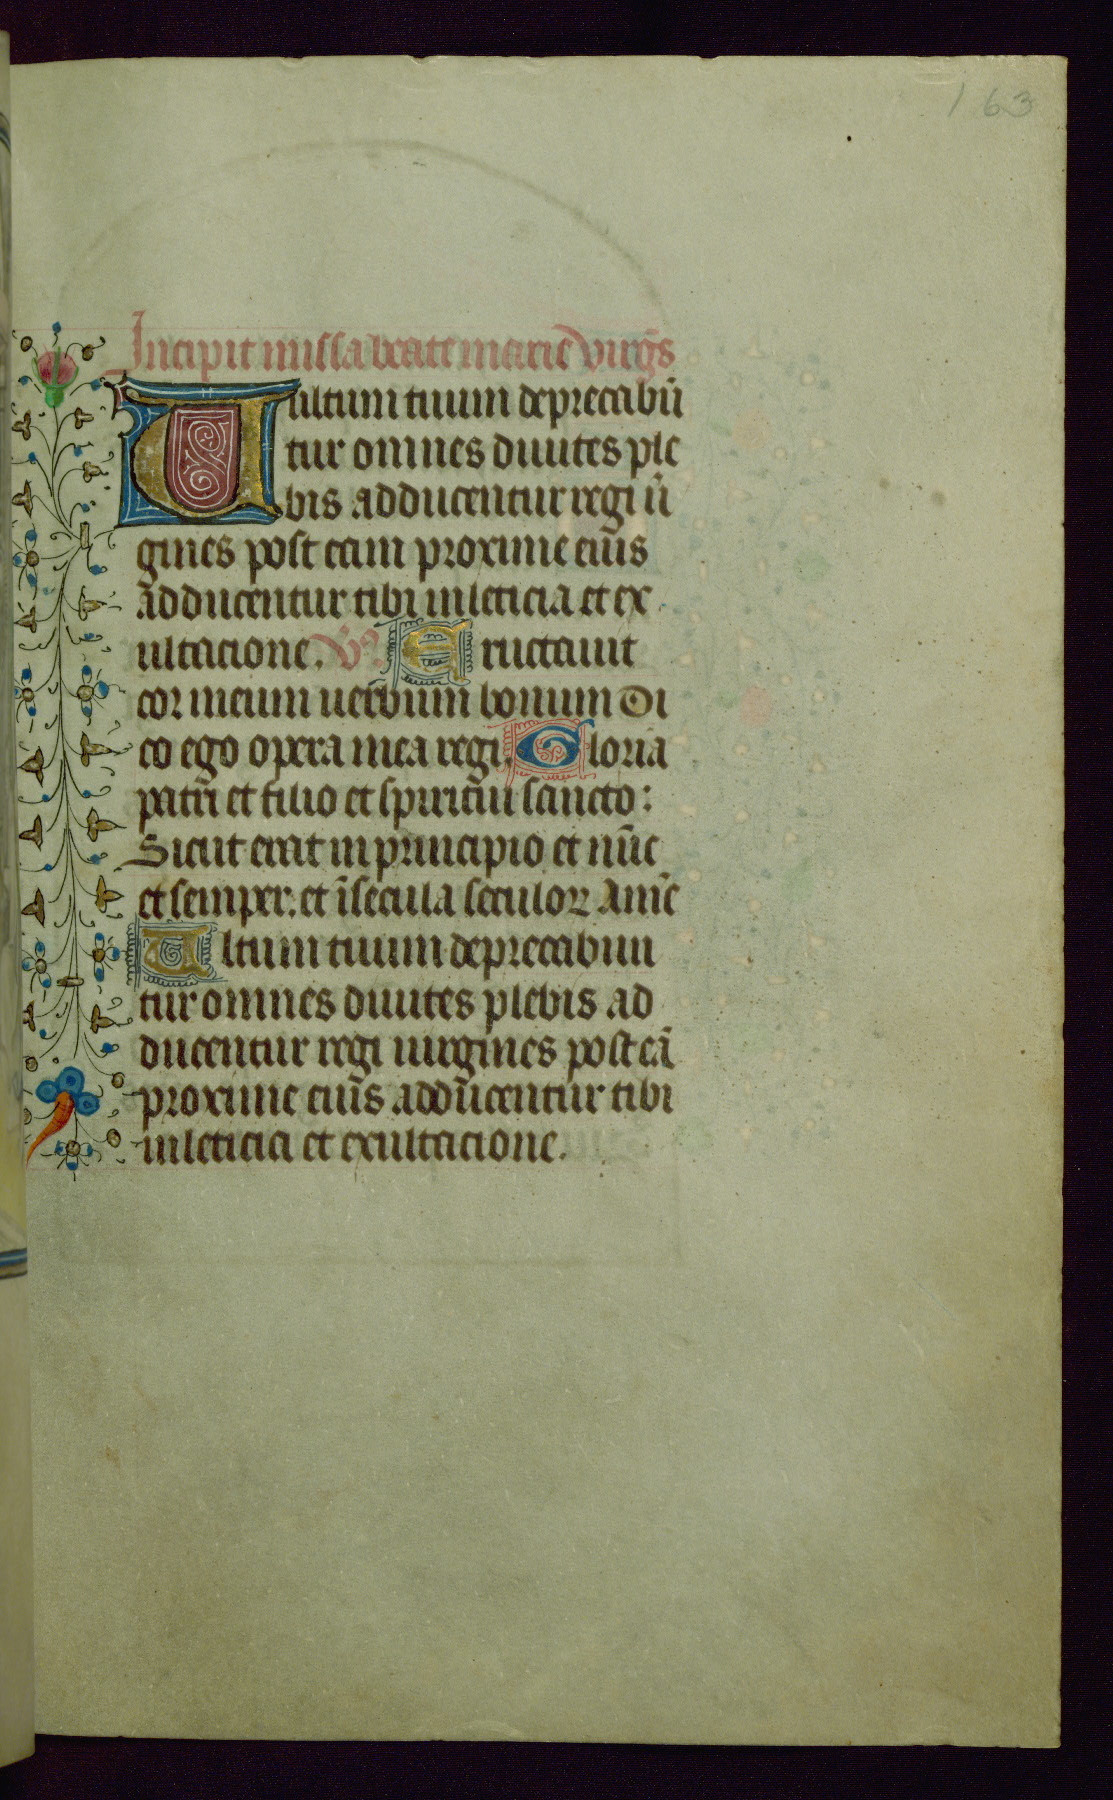 163
Incipit missa beate marie virgīs
Uultum tuum deprecabū
tur omnes diuites ple
bis adducentur regi ū
gines post eam proxime eius
adducentur tibi in leticia et ex
ultacione. Vs. Eructauit
cor meum uerbum bonum Di
co ego opera mea regi. Gloria
patri et filio et spiritui sancto:
Sicut erat in principio et nūc
et semper: et ī secula seculoꝝ Amē
Ultum tuum deprecabun
tur omnes diuites plebis ad
ducentur regi uirgines post eā
proxime eius adducentur tibi
in leticia et exultacione.